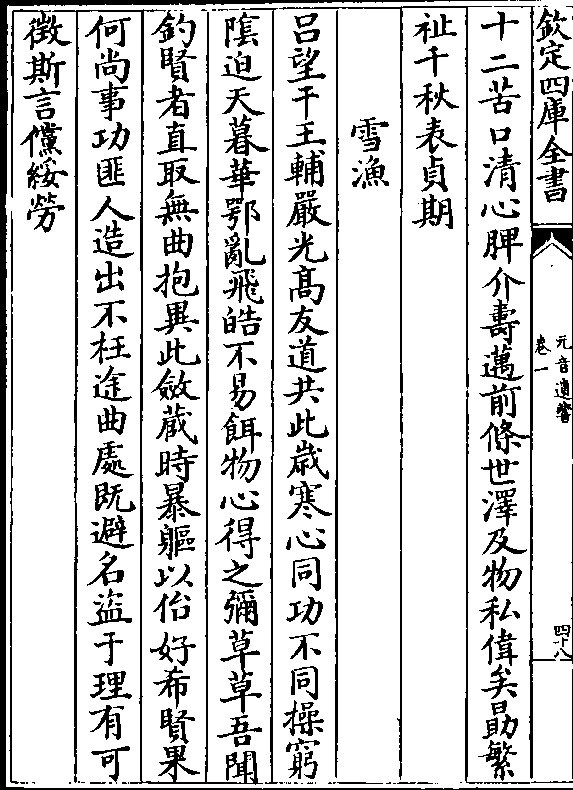 欽定四庫全書
元音遺響
卷一
四十八
十二苦口清心脾介壽邁前條世澤及物私偉矣勗繁
祉千秋表貞期
雪漁
呂望干王輔嚴光髙友道共此歲寒心同功不同操窮
隂迫天暮華鄂亂飛皓不易餌物心得之彌草草吾聞
釣賢者直取無曲抱異此斂蔵時暴軀以佁好希賢果
何尚事功匪人造出不枉途曲處既避名盜于理有可
徴斯言儻綏勞